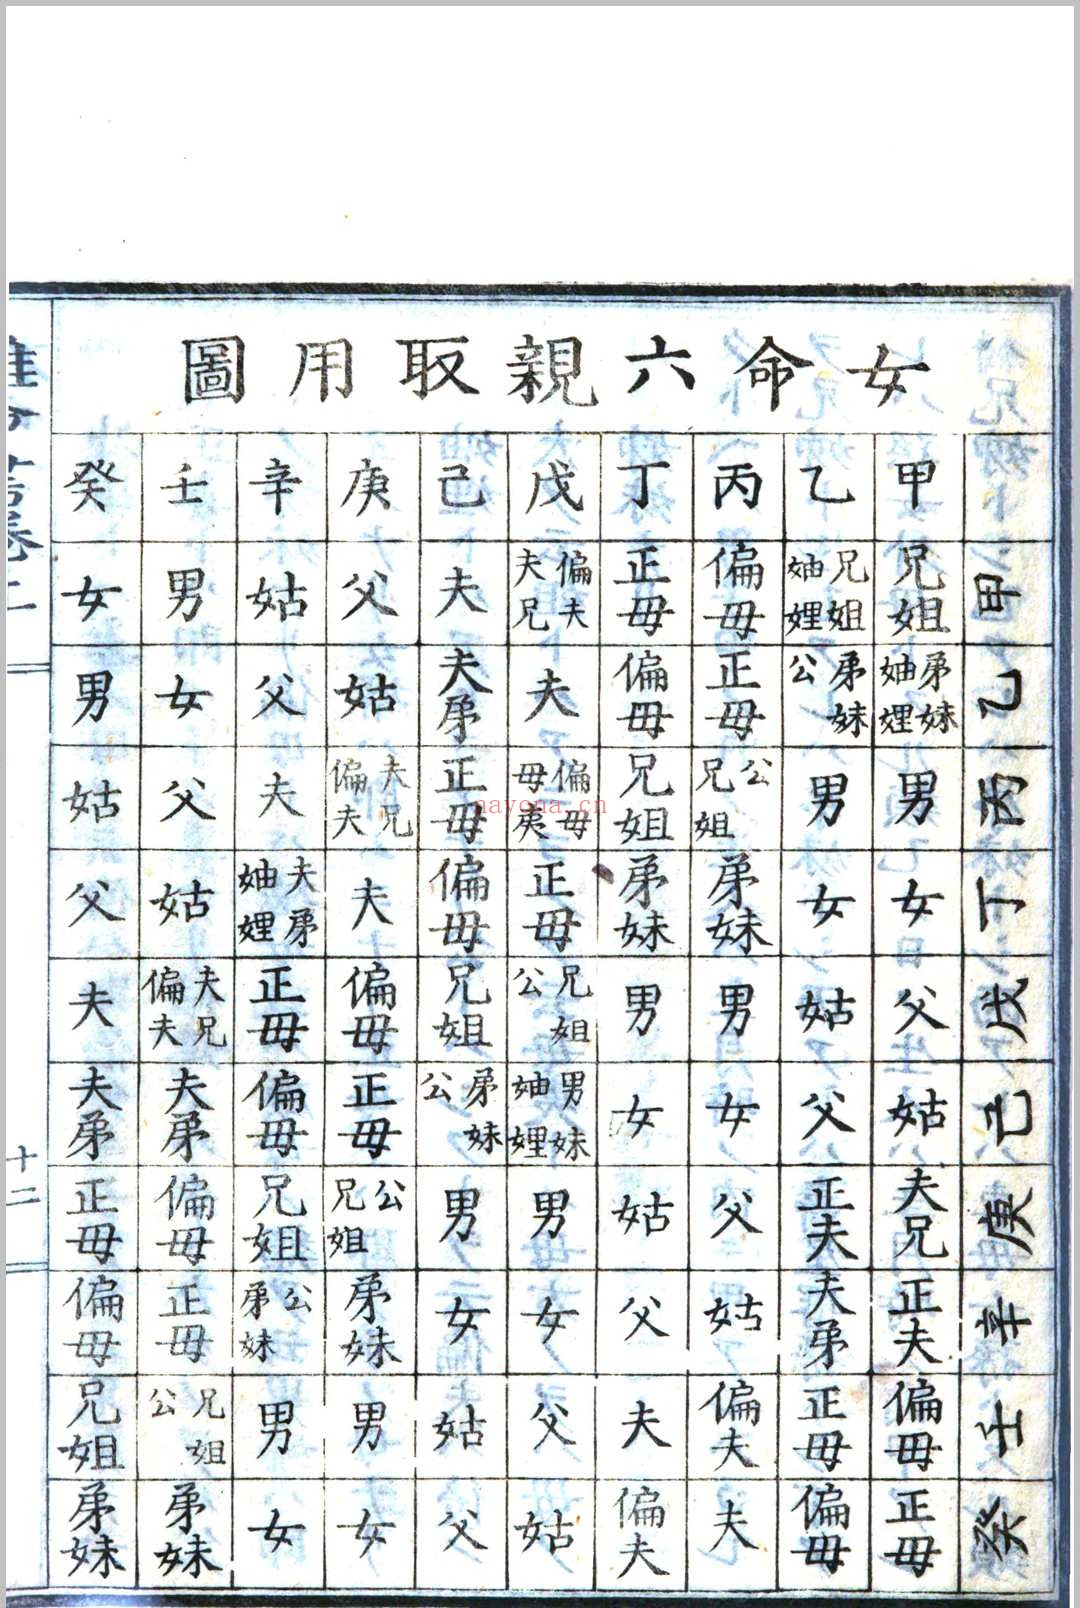 女命六親取用圖
甲 乙 丙 丁 戊 己 庚 辛 壬 癸
甲 兄姐 弟妹妯娌 男 女 父 姑 夫兄 正夫 偏母 正母
乙 兄姐妯娌 弟妹公 男 女 姑 父 正夫 夫弟 正母 偏母
丙 偏母 正母 公兄姐 弟妹 男 女 父 姑 偏夫 夫
丁 正母 偏母 兄姐 弟妹 男 女 姑 父 夫 偏夫
戊 偏夫夫兄 夫 偏母母夷 正母 兄姐公 男妹妯娌 男 女 父 姑
己 夫 夫弟 正母 偏母 兄姐 弟妹公 男 女 姑 父
庚 父 姑 夫兄偏夫 夫 偏母 正母 公兄姐 弟妹 男 女
辛 姑 父 夫 夫弟妯娌 正母 偏母 兄姐 公弟妹 男 女
壬 男 女 父 姑 夫兄偏夫 夫弟 偏母 正母 兄姐公 弟妹
癸 女 男 姑 父 夫 夫弟 正母 偏母 兄姐 弟妹
書卷二
十二
nayona.cn